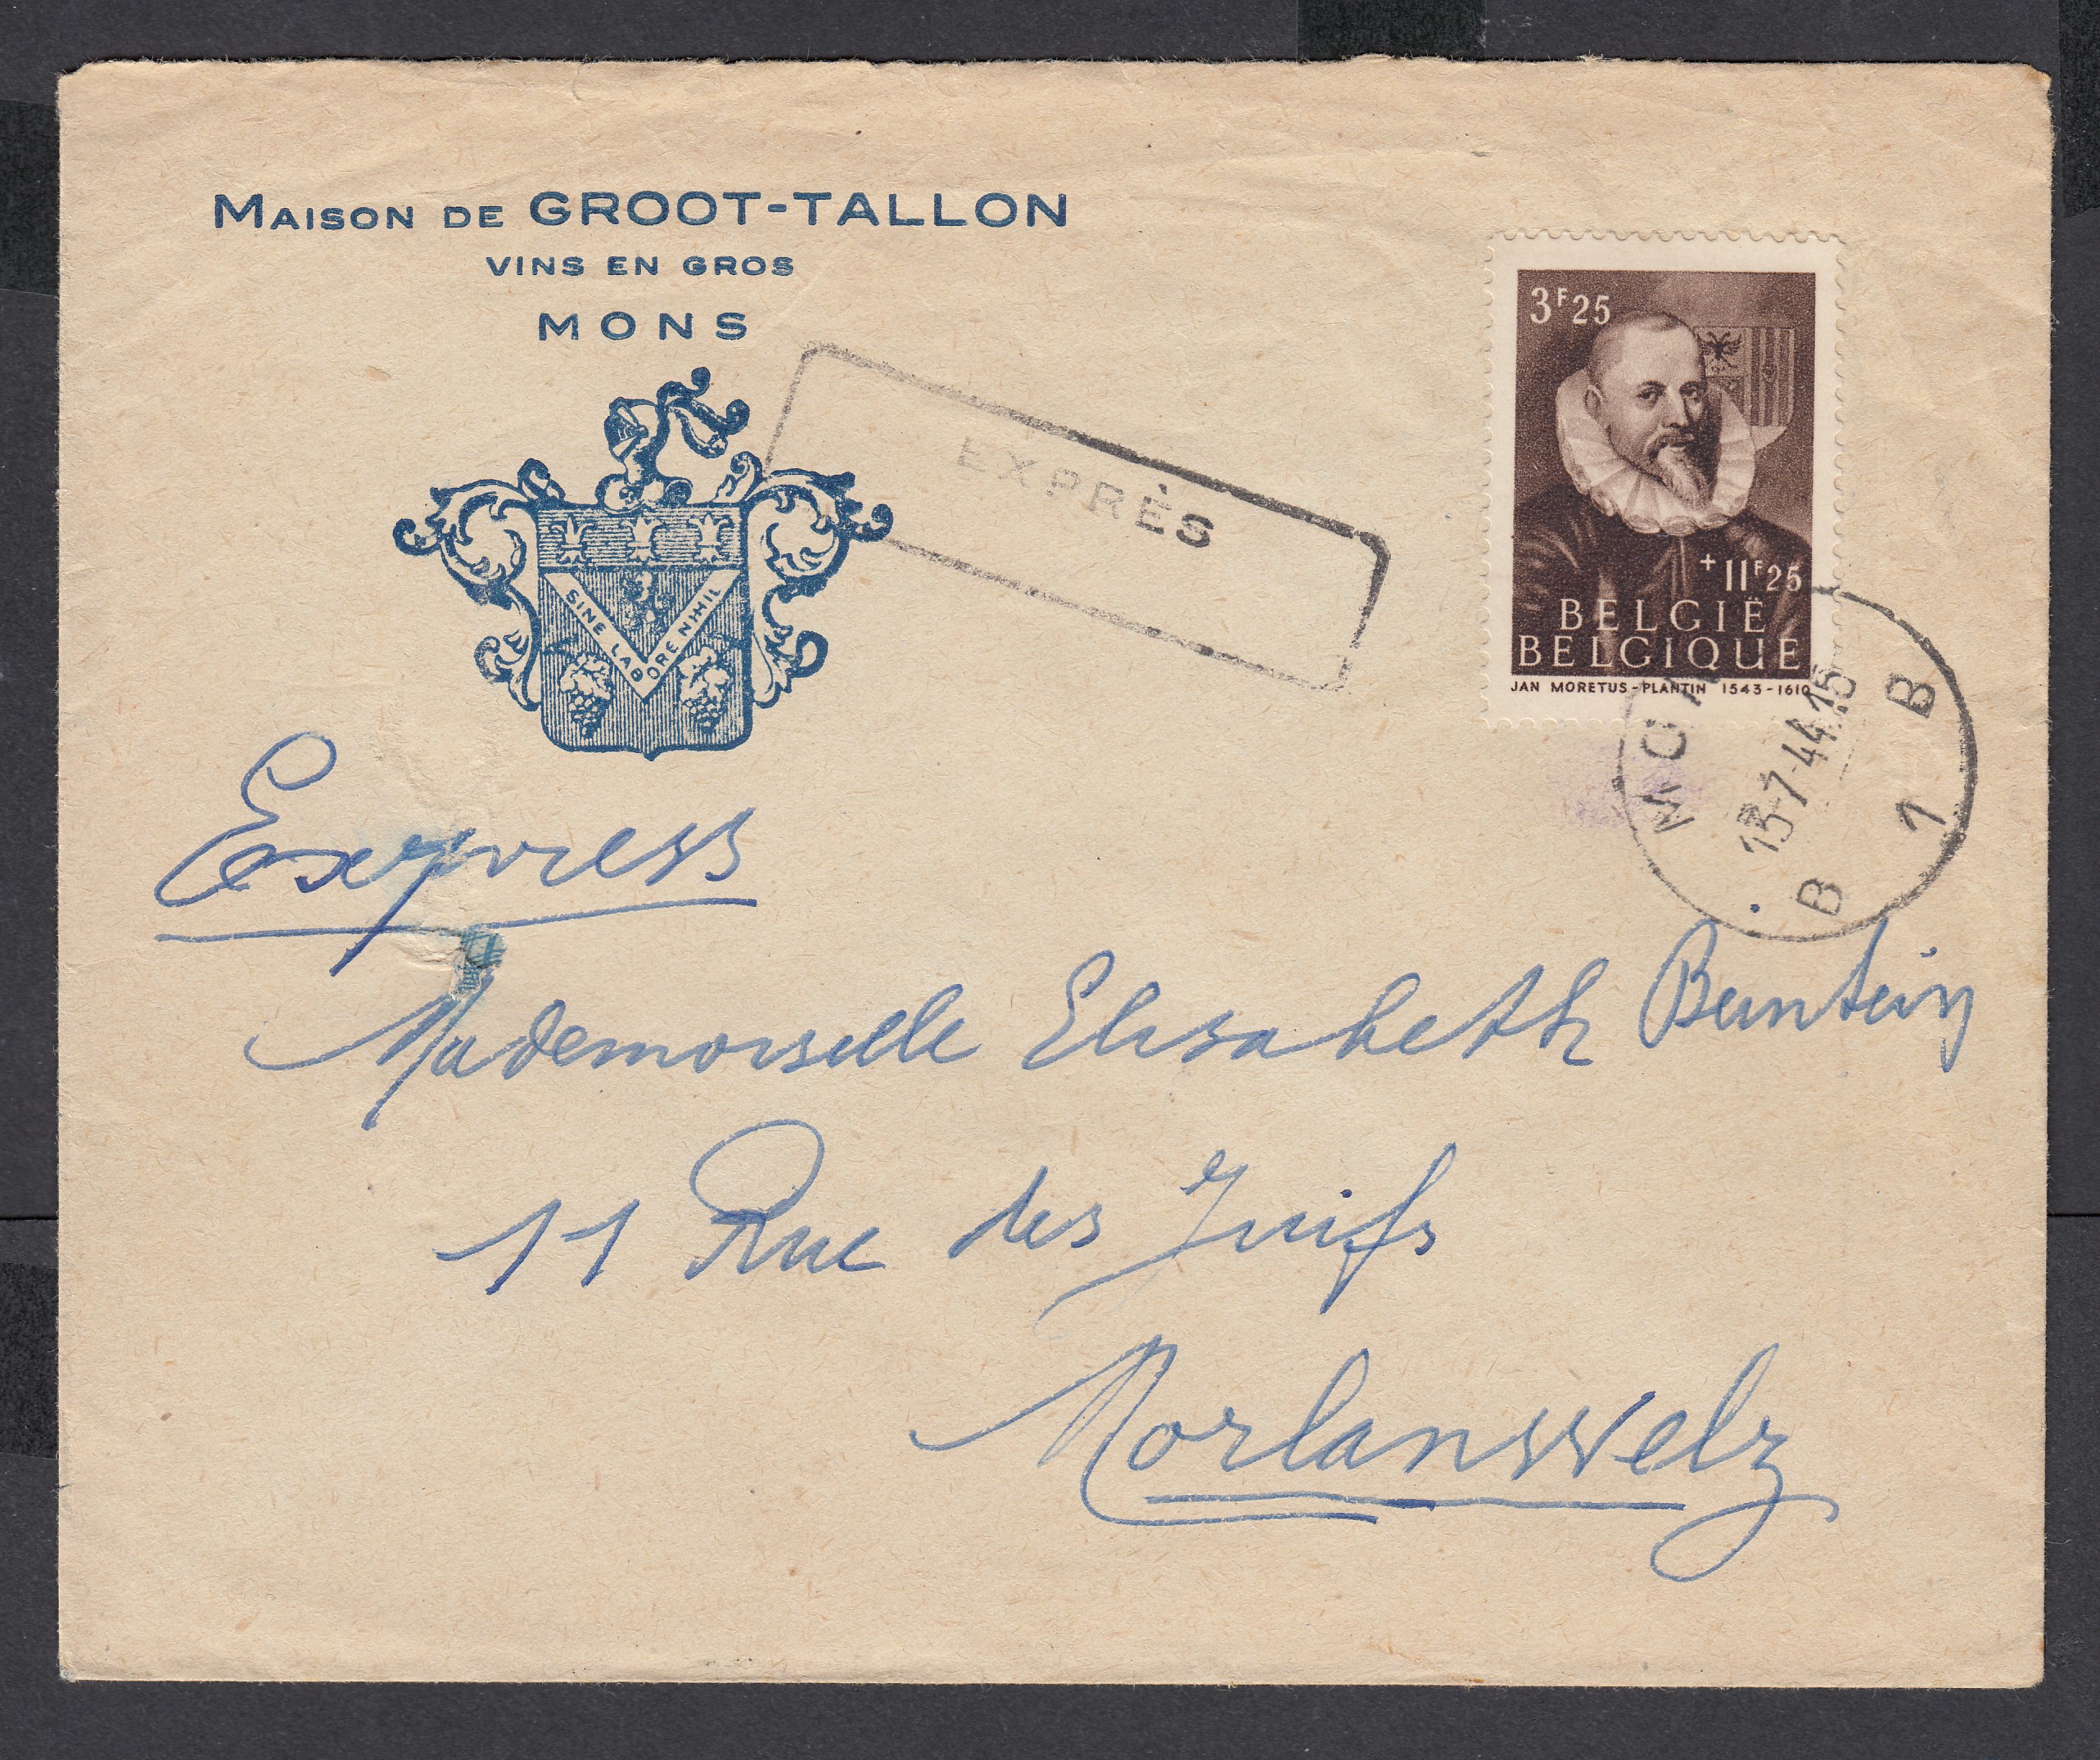 MAISON DE GROOT-TALLON
VINS EN GROS
MONS
SINE LABORE NIHIL
EXPRÈS
3F25
+11F25
BELGIË
BELGIQUE
JAN MORETUS-PLANTIN 1543-1610
13-7-44.15
B 1 B
Express
Mademoiselle Elisabeth
11 Rue des Juifs
Morlanwelz